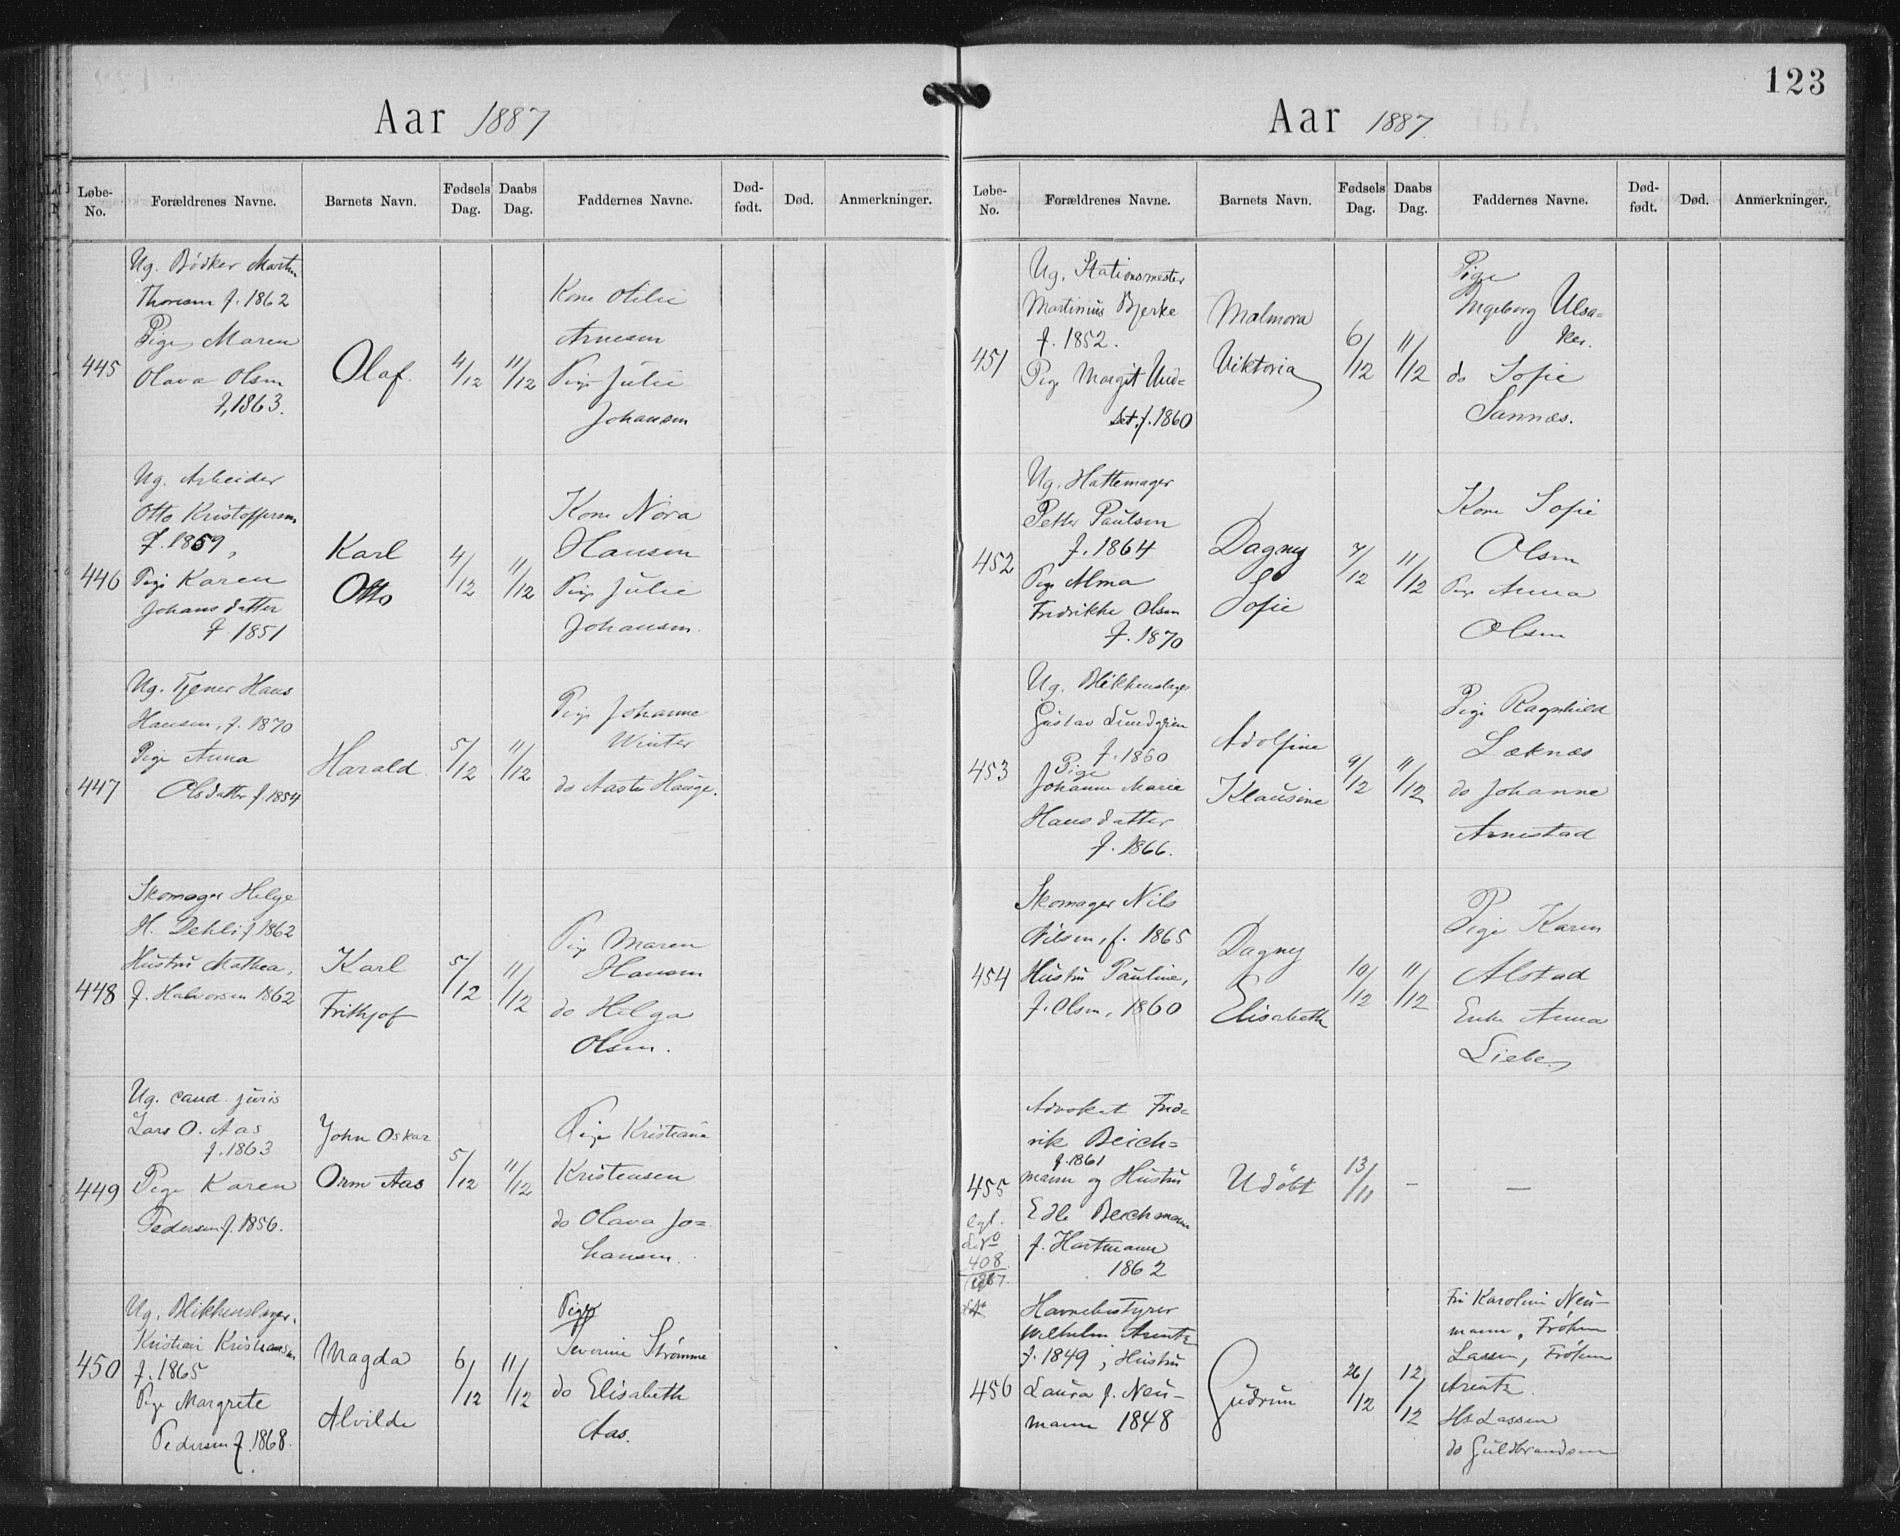 123
Aar 1887
Løbe-No. Forældrenes Navne. Barnets Navn. Fødsels Dag. Daabs Dag. Faddernes Navne. Død-født. Død. Anmerkninger.
445
Ug. Bødker Martin
Thoresen f. 1862
Pige Maren
Olava Olsen
f. 1863.
Olaf.
4/12
11/12
Kone Otilie
Arnesen
Pige Julie
Johansen
446
Ug. Arbeider
Otto Kristoffersen
f. 1859,
Pige Karen
Johansdatter
f. 1851
Karl
Otto
4/12
11/12
Kone Nora
Hansen
Pige Julie
Johansen.
447
Ug. Tjener Hans
Hansen, f. 1870
Pige Anna
Olsdatter f. 1854
Harald
5/12
11/12
Pige Johanne
Winter
do Aaste Hauge.
448
Skomager Helge
H. Dehli f 1862
Hustru Mathea,
f. Halvorsen 1862
Karl
Frithjof
5/12
11/12
Pige Maren
Hansen
do Helga
Olsen.
449
Ug. cand. juris
Lars O. Aas
f. 1863
Pige Karen
Pedersen f. 1856.
John Oskar
Orm Aas
5/12
11/12
Pige Kristiane
Kristensen
do Olava Jo=
hansen.
450
Ug. Blikkenslager
Kristian Kristiansen
f. 1865
Pige Margrete
Pedersen f. 1868.
Magda
Alvilde
6/12
11/12
Pige
Severine Strømme
do Elisabeth
Aas.
Aar 1887.
Løbe-No. Forældrenes Navne. Barnets Navn. Fødsels Dag. Daabs Dag. Faddernes Navne. Død-født. Død. Anmerkninger.
451
Ug. Stationsmester
Martinius Bjerke
f. 1852.
Pige Margit Und=
set. f. 1860
Malmora
Viktoria
6/12
11/12
Pige
Ingeborg Ulsa=
ker.
do Sofie
Sannæs.
452
Ug. Hattemager
Petter Paulsen
f. 1864
Pige Alma
Fredrikke Olsen
f. 1870
Dagny
Sofie
7/12
11/12
Kone Sofie
Olsen
Pige Anna
Olsen
453
Ug. Blikkenslager
Gustav Lundgren
f. 1860
Pige
Johanne Marie
Hansdatter
f. 1866.
Adolfine
Klausine
9/12
11/12
Pige Ragnhild
Læknæs
do Johanne
Arnestad
454
Skomager Nils
Nilsen, f. 1865
Hustru Pauline,
f. Olsen, 1860
Dagny
Elisabeth
10/12
11/12
Pige Karen
Alstad
Enke Anna
Liebe
455
Advokat Fred=
rik Beich=
f. 1861
mann og Hustru
Edle Beichmann
f. Hartmann
1862
Udøbt
13/11
–
–
408
1887.
456
Havnebestyrer
Wilhelm Arentz
f. 1849, Hustru
Laura f. Neu-
mann 1848
Gudrun
26/12
12/12
Fru Karoline Neu-
mann, Frøken
Lassen, Frøken
Arentz.
Hr Lassen
do Guldbrandsen